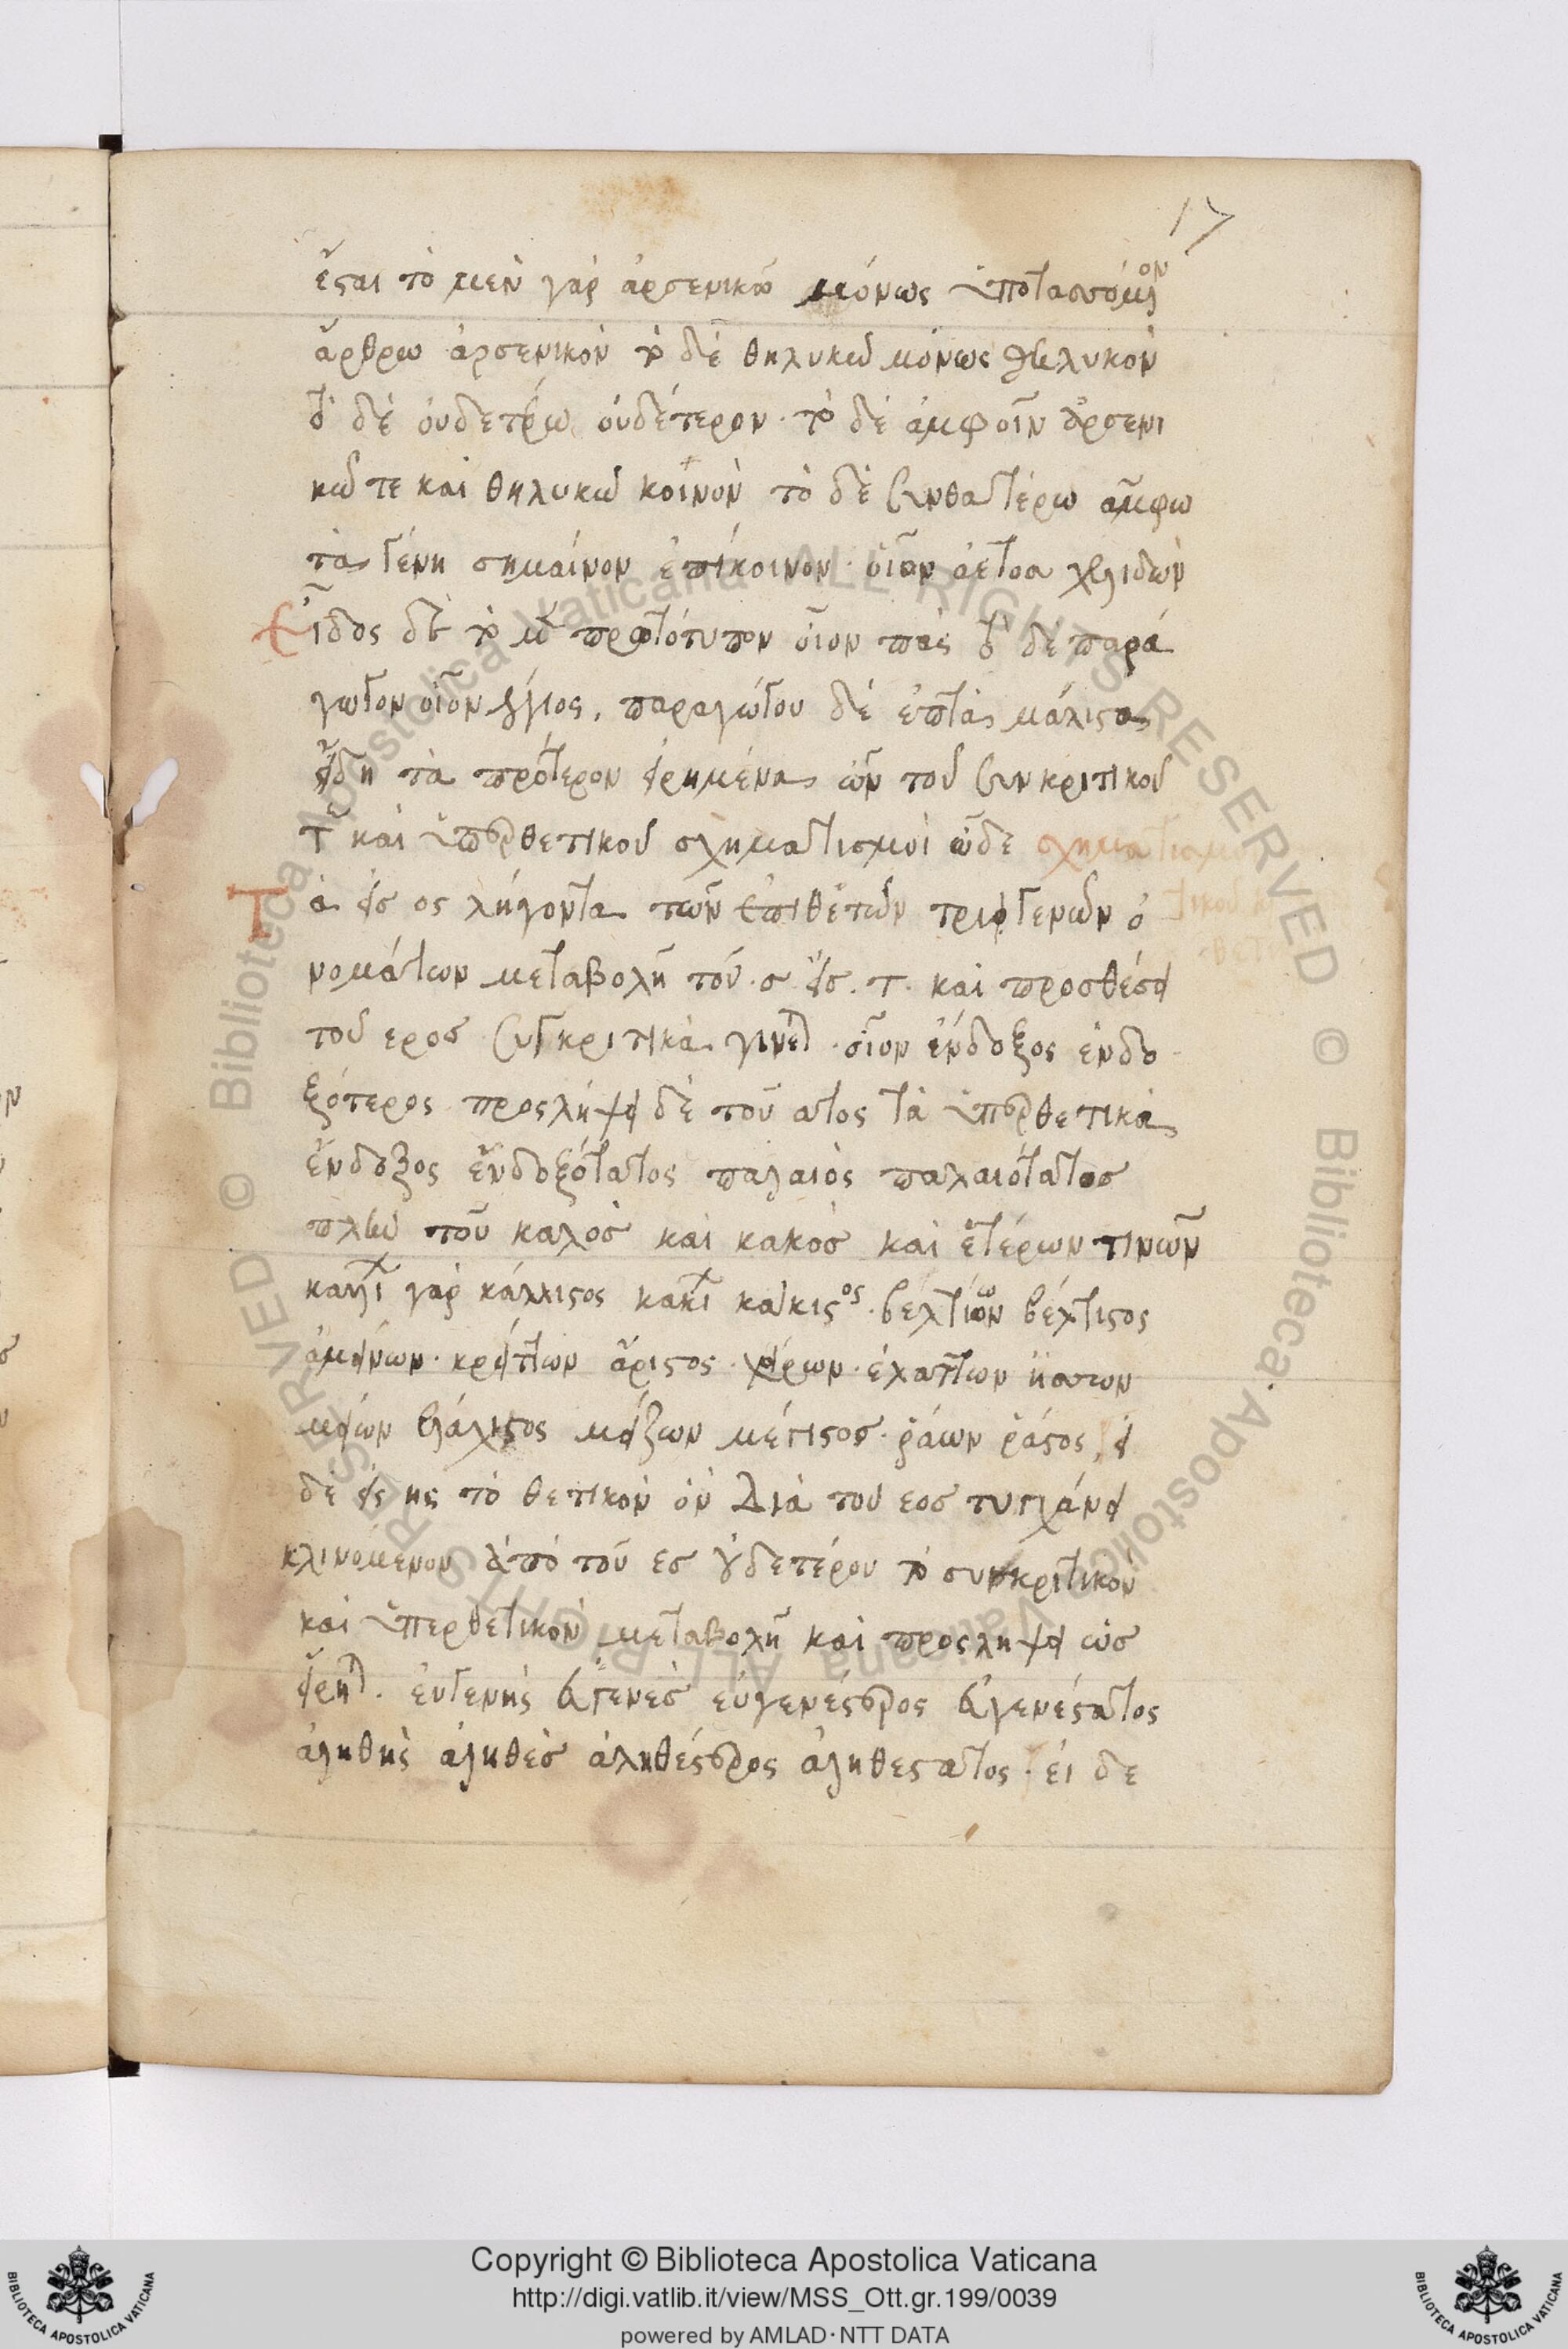 17
ἔσται τὸ μὲν γὰρ ἀρσενικῶ μόνως ὑποτασσόμενον
ἄρθρω ἀρσενικὸν τὸ δὲ θηλυκῶ μόνως θηλυκὸν
τὸ δὲ οὐδετέρω οὐδέτερον· τὸ δὲ ἀμφοῖν ἀρσενι
κῶ τε καὶ θηλυκῶ κοινὸν τὸ δὲ συνθατέρω ἄμφω
τὰ γένη σημαίνον ἐπίκοινον· οἷον ἀετὸσ χελιδών
Εἶδος δὲ τὸ μὲν πρωτότυπον οἷον πᾶς τὸ δὲ παρά
γωτον οἷον γήιος, παραγώτου δὲ ἑπτὰ μάλιστα
εἴδη τὰ πρότερον εἰρημένα ὧν τοῦ συνκριτικοῦ
τε καὶ ὑπερθετικοῦ σχηματισμοὶ ὧδε σχηματισμὸς
Τὰ εἰσ ος λήγοντα τῶν ἐπιθέτων τριγενῶν ὀ
νομάτων μεταβολῆ τοῦ·σ·εἰσ·τ· καὶ προσθέσει
τοῦ εροσ συγκριτικὰ γίνεται· οἷον ἔνδοξος ἐνδο
ξότερος προσλήψει δὲ τοῦ ατος τὰ ὑπερθετικὰ
ἔνδοξος ἐνδοξότατος παλαιὸς παλαιότατοσ
πλὴν τοῦ καλὸσ καὶ κακὸσ καὶ ἑτέρων τινῶν
καλλίων γὰρ κάλλιστος κακίων κάκιστος· βελτίων βέλτιστος
ἀμείνων· κρείττων ἄριστος· χείρων· ἐλάττων ἥσσων
μείων ἐλάχιστος μείζων μέγιστοσ· ῥάων ῥάστος, εἰ
δὲ εἰς ης τὸ θετικὸν ὂν διὰ τοῦ εοσ τυγχάνει
κλινόμενον ἀπὸ τοῦ εσ οὐδετέρου τὸ συνκριτικὸν
καὶ ὑπερθετικὸν μεταβολῆ καὶ προσλήψει ὡσ
εἴρηται· εὐγενὴς εὐγενὲσ εὐγενέστερος εὐγενέστατος
ἀληθὴς ἀληθὲσ ἀληθέστερος ἀληθέστατος· εἰ δε
Copyright © Biblioteca Apostolica Vaticana
http://digi.vatlib.it/view/MSS_Ott.gr.199/0039
powered by AMLAD·NTT DATA